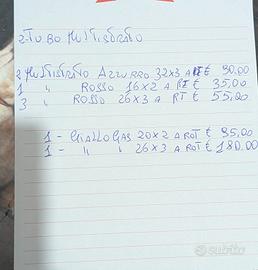 2 TUBO MULTISTRATO
2 MULTISTRATO AZZURRO 32x3 A RT € 90.00
1 " ROSSO 16x2 A RT € 35,00
3 " ROSSO 26x3 A RT € 55,00
1 - GIALLO GAS 20x2 A ROT € 85.00
1 - " " 26x3 A ROT € 180.00
subito